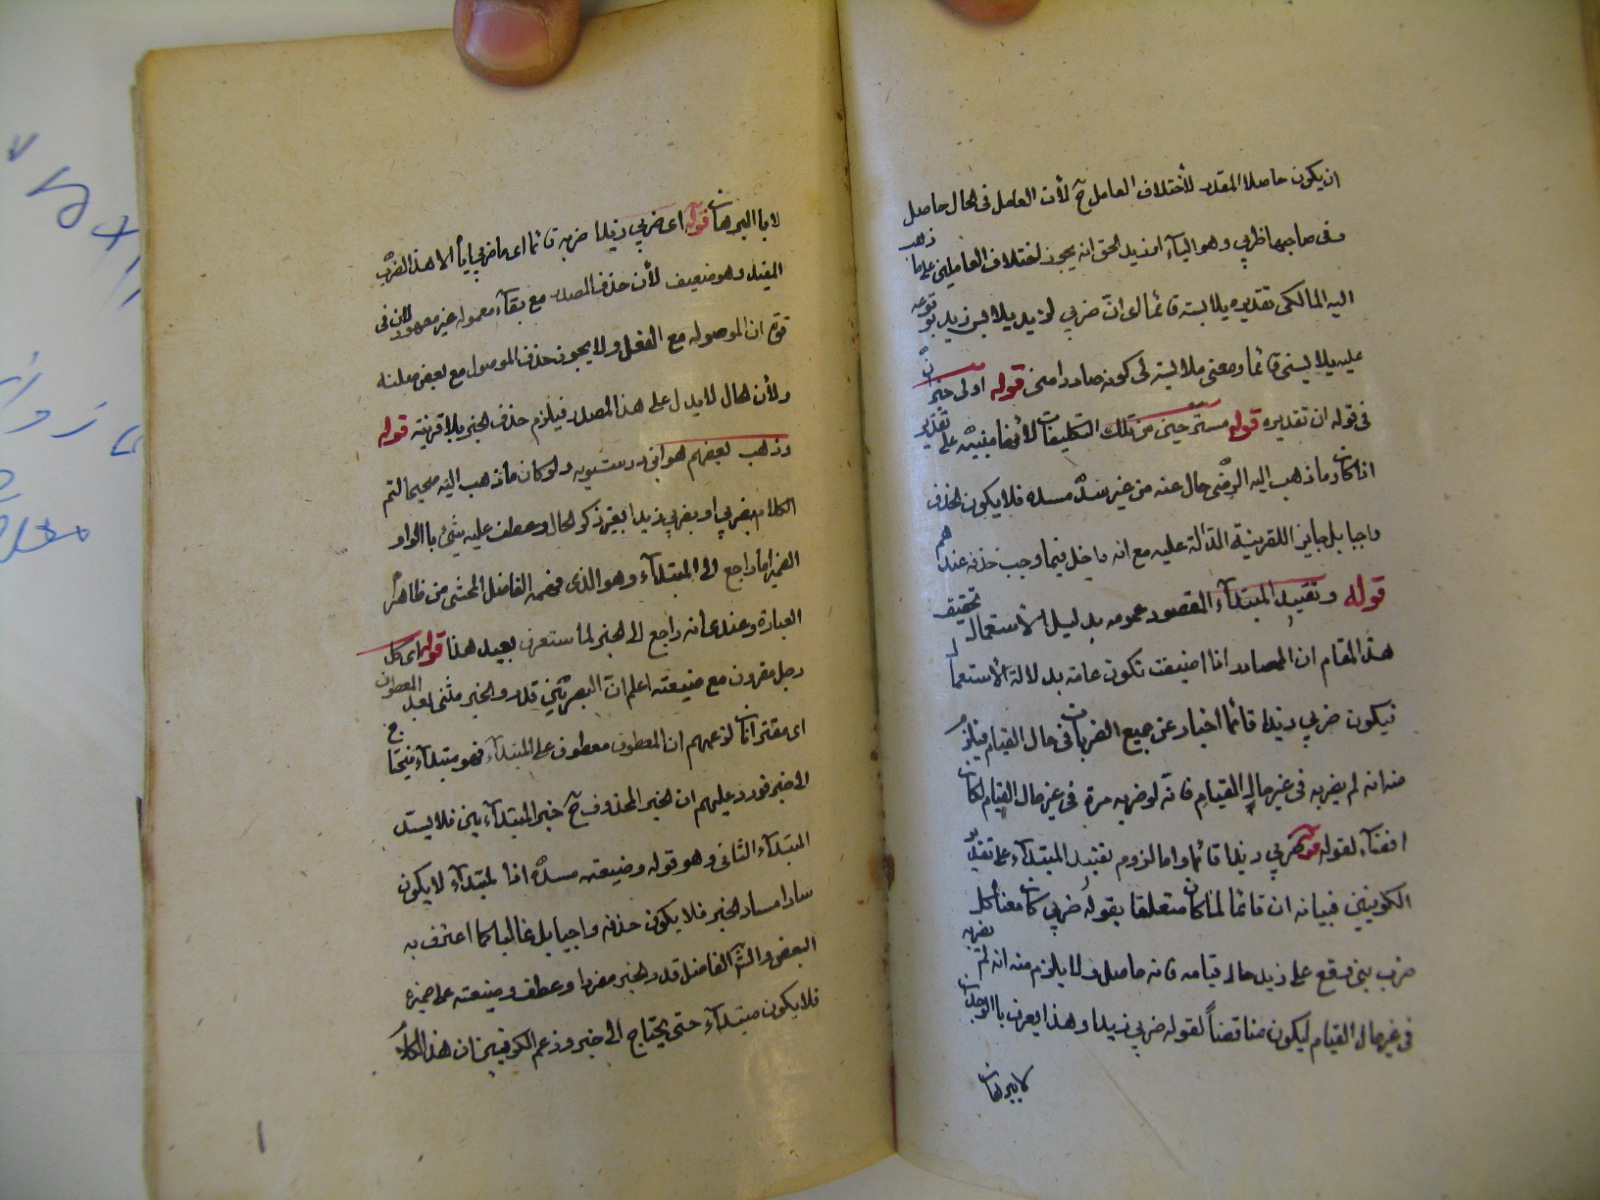 ان يكون حاصلا المقدر لأختلاف العامل ح لأن العامل فى الحال حاصل
وفى صاحبها ضربي وهو الياء او زيد الحق انه يجوز اختلاف العاملين على ما ذهب
اليه المالكى تقديره يلابسه قائما اى ان ضربي لزيد يلابس زيد
عليه يلابسنى قائما ومعنى ملابسته لى كونه صادرا منى قوله اولى حتى
فى قوله ان تقديره قوله مستر حتى من تلك التكليفات لأنها مبنية على تقدير
اذا كان وما ذهب اليه الرضى حال عنه من غير سد مسده فلا يكون الحذف
واجبا بل جايز اللقرينة الدالة عليه مع انه داخل فيما وجب حذفه عندهم
قوله وتقييد المبتدأء المقصود عمومه بدليل الاستعمال تحقيق
هذا المقام ان المصادر اذا اضيفت تكون عامة بدلالة الأستعمال
فيكون ضربي زيدا قائما اخبار عن جميع الضربات فى حال القيام فيلزم
منه انه لم يضربه فى غير حال القيام فانه لو ضربه مرة فى غير حال القيام لكان
لقوله ضربي زيدا قائما واما لزوم تقييد المبتدآء على تقدير
الكوفيين فبيانه ان قائما لما كان متعلقا بقوله ضربي كان معناه كل
ضرب منى وقع على زيد حال قيامه فانه حاصل ولا يلزم منه انه لم يضربه
فى غير حال القيام ليكون مناقضاً لقوله ضربي زيدا وهذا يعرف بالوجدان
لا بالبرهان
لا باالبرهان قوله اى ضربي زيدا ضربه قائما اى ما ضربي اياه الا هذا الضرب
المقيد وهو ضعيف لأن حذف المصدر مع بقآء معموله غير معهود لان فى
قوة ان الموصوله مع الفعل ولا يجوز حذف الموصول مع بعض صلته
ولأن الحال لا يدل على هذا المصدر فيلزم حذف الخبر بلا قرينة قوله
وذهب بعضهم هو ابن درستويه ولو كان ما ذهب اليه صحيحا لتم
الكلام بضربي او بضربي زيدا بغير ذكر الحال وعطف عليه شئ باالواو
الضمير اما راجع الى المبتدآء وهو الذى فهمه الفاضل المحشى من ظاهر
العبارة وعندى انه راجع الى الخبر لما ستعرف بعيد هذا قوله اى كل
رجل مقرون مع ضيعته اعلم انّ البصريّين قدروا الخبر مثنى بعد المعطوف
اى مقترنان لزعمهم ان المعطوف معطوف على المبتدآء فهو مبتدآء فيحتاج
الى خبر فورد عليهم ان الخبر المحذوف ح خبر المبتدآءين فلا يسد
المبتدآء الثانى وهو قوله وضيعته مسدّه اذ المبتدآء لا يكون
سادا مساد الخبر فلا يكون حذفه واجبا بل غالبا كما اعترف به
البعض والشّ الفاضل قدر الخبر مفردا وعطف وضيعته على ضميره
فلا يكون مبتدآء حتى يحتاج الى خبر وزعم الكوفيين ان هذا الكلام